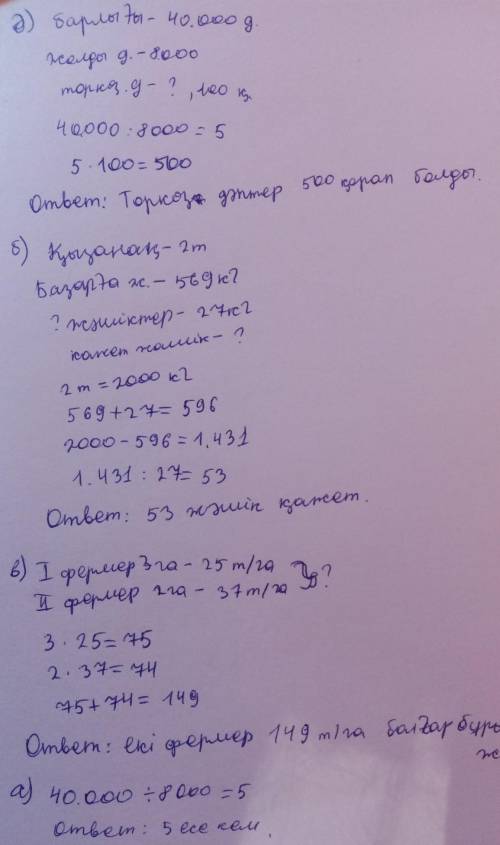 ә) Барлығы - 40.000 д.
жолды д. - 8000
торкөз.д - ?, 100 қ
40.000 : 8000 = 5
5 · 100 = 500
Ответ: Торкөз дәптер 500 қорап болды.
б) Қызанақ - 2т
Базарға ж. - 569 кг
? жәшіктер - 27кг
кажет жәшік - ?
2т = 2000 кг
569 + 27 = 596
2000 - 596 = 1.431
1.431 : 27 = 53
Ответ: 53 жәшік қажет.
в) I фермер 3га - 25 т/га ?
II фермер 2га - 37 т/га
3 · 25 = 75
2 · 37 = 74
75 + 74 = 149
Ответ: екі фермер 149 т/га болғар бұры
ж
а) 40.000 ÷ 8000 = 5
Ответ: 5 есе кем.